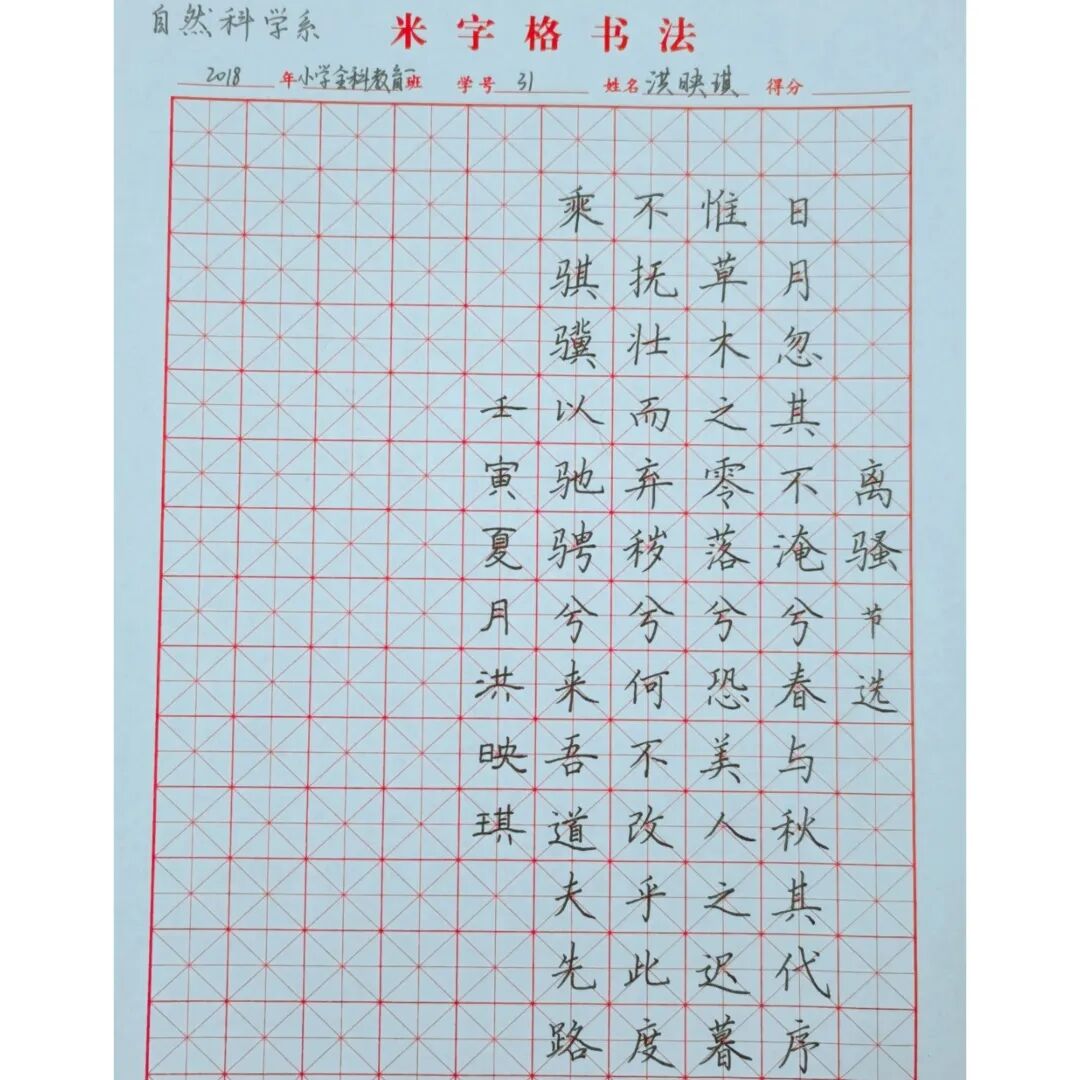 自然科学系
米字格书法
2018年小学全科教育一班 学号 31 姓名 洪映琪 得分
离骚节选
日月忽其不淹兮春与秋其代序
惟草木之零落兮恐美人之迟暮
不抚壮而弃秽兮何不改乎此度
乘骐骥以驰骋兮来吾道夫先路
壬寅夏月洪映琪